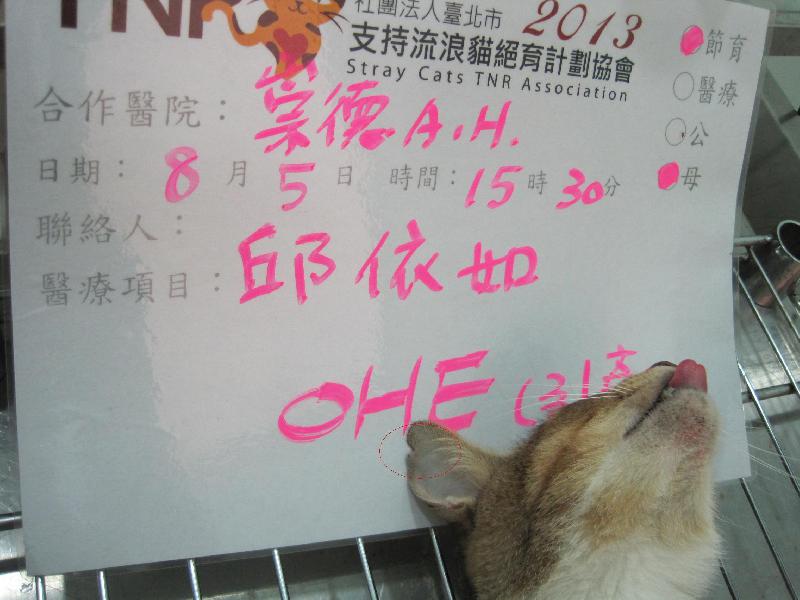 TNR
社團法人臺北市 2013
支持流浪貓絕育計劃協會
Stray Cats TNR Association
節育
醫療
公
母
合作醫院：崇德A.H.
日期：8月5日 時間：15時30分
聯絡人：
醫療項目：邱依如
OHE (引產